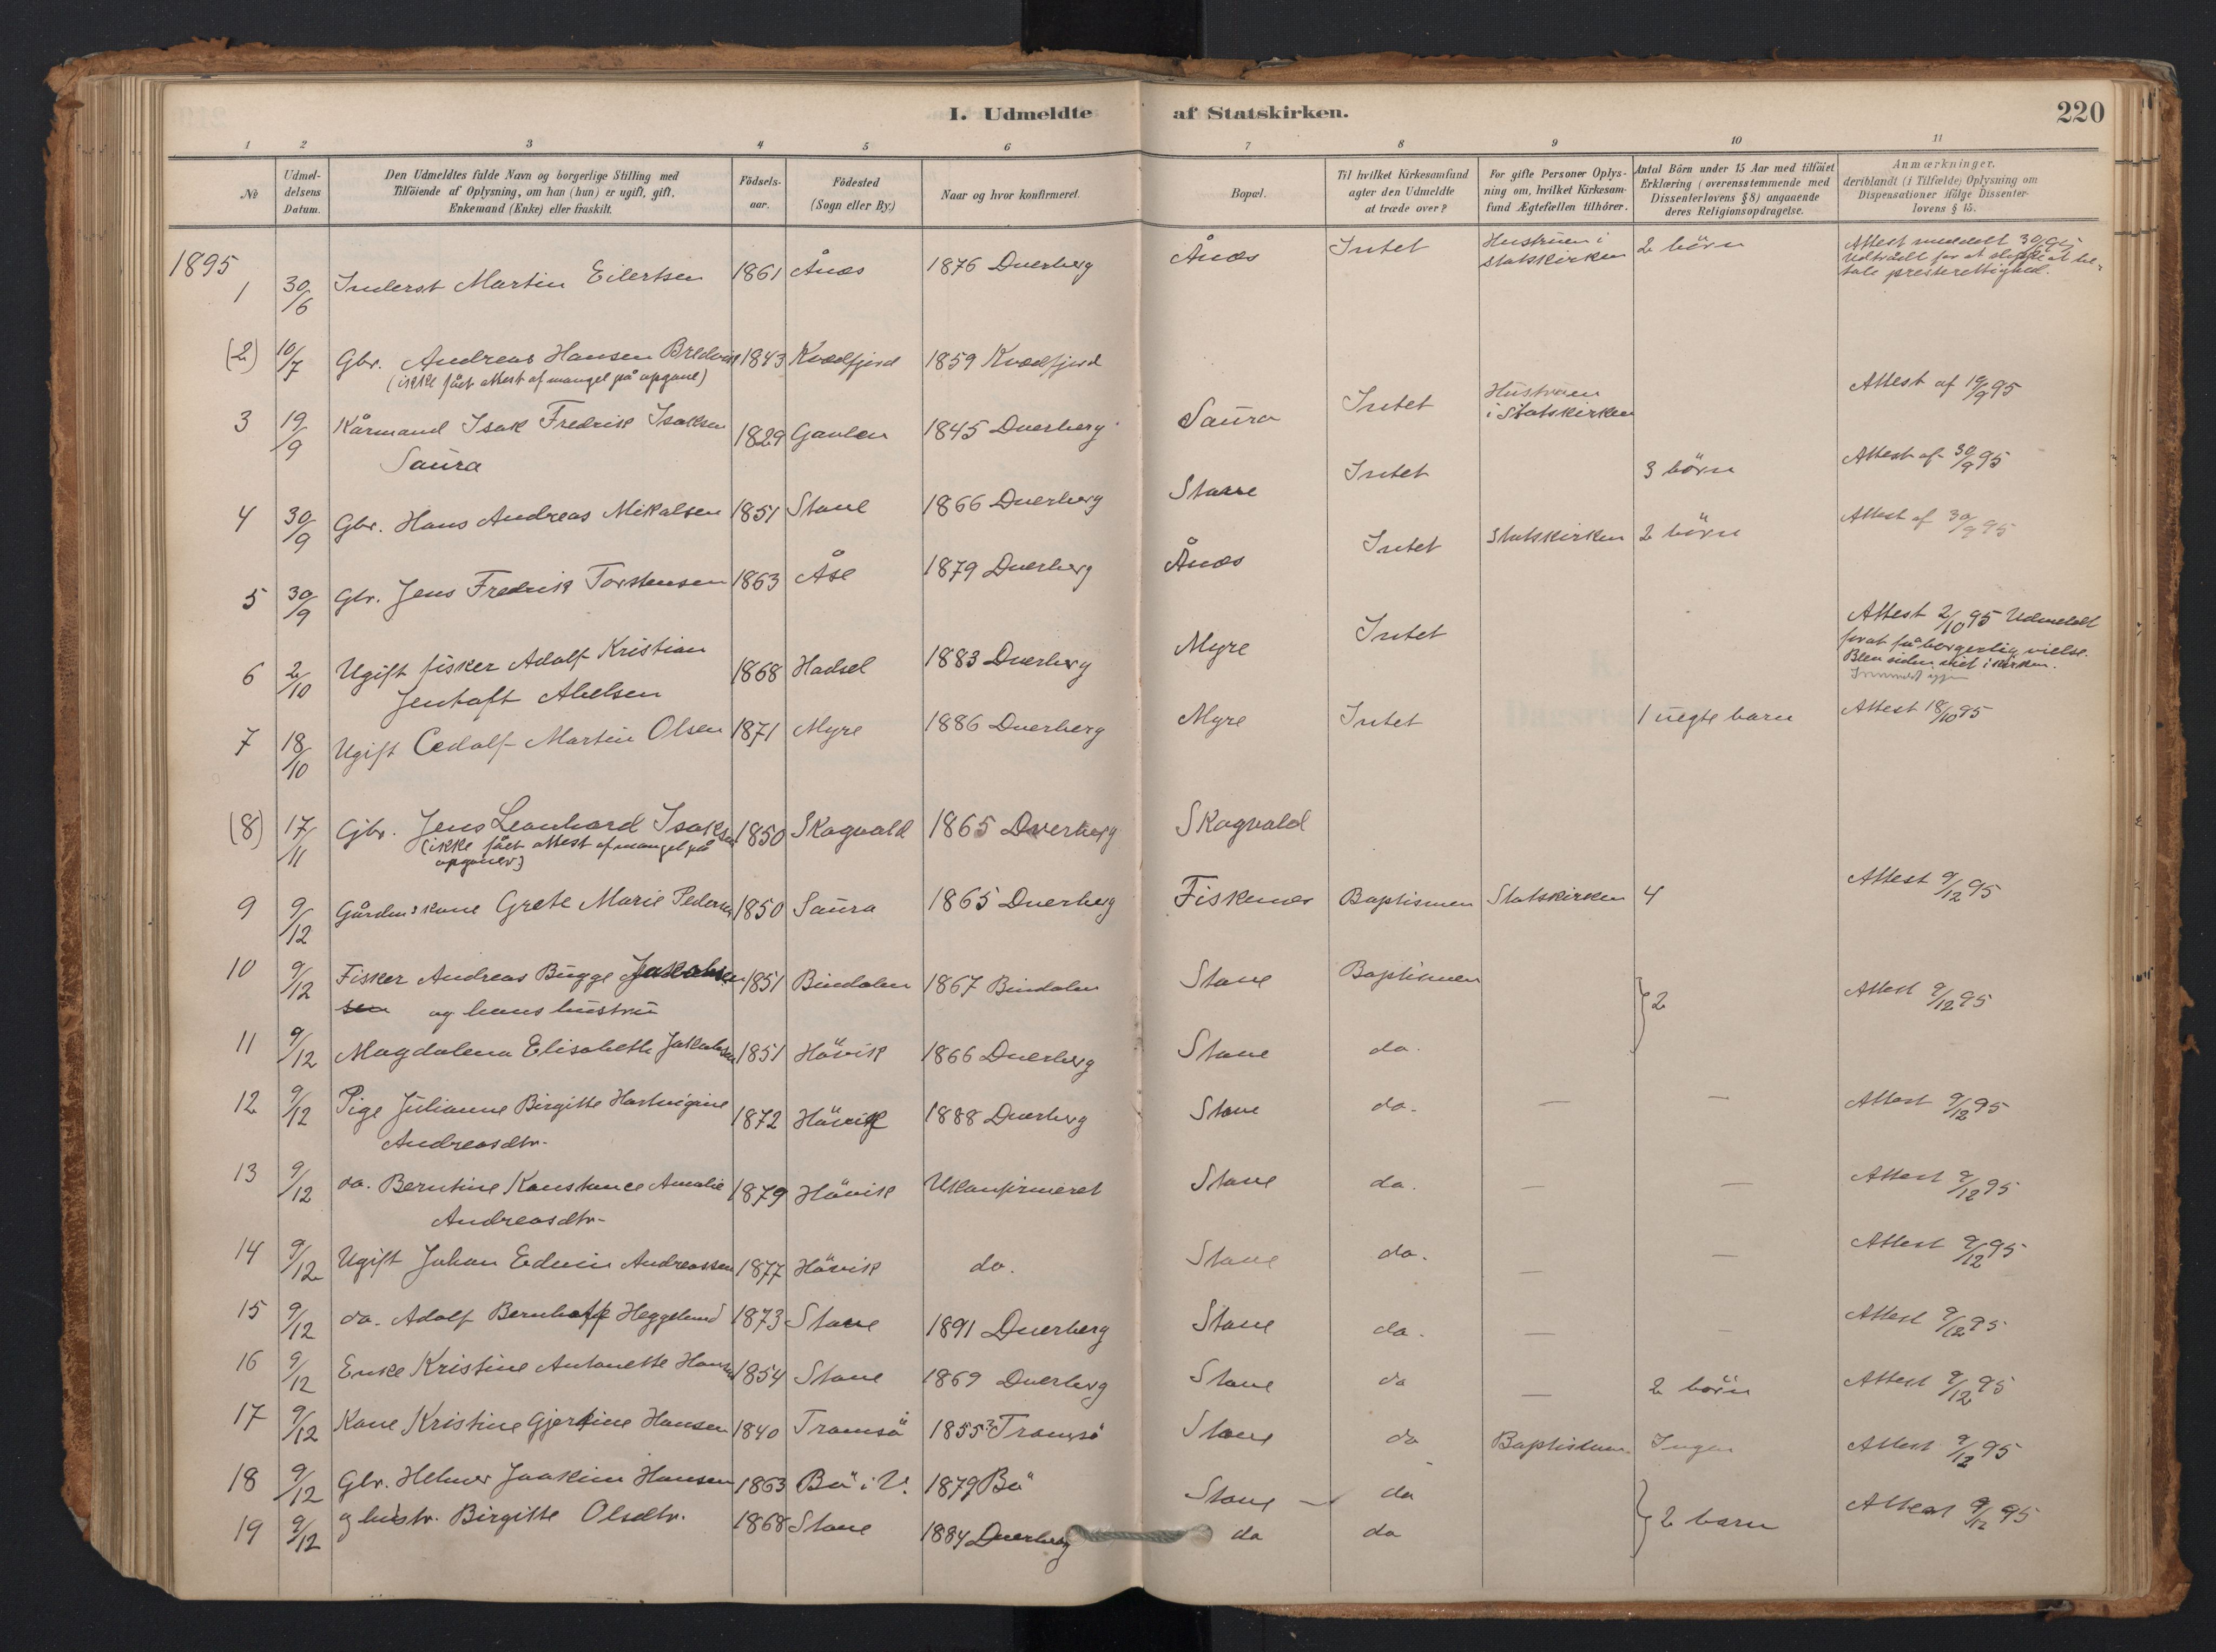 I. Udmeldte af Statskirken.
220
1 2 3 4 5 6 7 8 9 10 11
№
Udmeldelsens Datum.
Den Udmeldtes fulde Navn og borgerlige Stilling med
Tilföiende af Oplysning, om han (hun) er ugift, gift,
Enkemand (Enke) eller fraskilt.
Födselsaar.
Födested
(Sogn eller By.)
Naar og hvor konfirmeret.
Bopæl.
Til hvilket Kirkesamfund
agter den Udmeldte
at træde over?
For gifte Personer Oplysning om, hvilket Kirkesamfund Ægtefællen tilhörer.
Antal Börn under 15 Aar med tilföiet
Erklæring (overensstemmende med
Dissenterlovens §8) angaaende
deres Religionsopdragelse.
Anmærkninger,
deriblandt (i Tilfælde) Oplysning om
Dispensationer ifölge Dissenterlovens § 15.
1895
1 30/6 Inderst Martin Eilertsen 1861 Ånæs 1876 Dverberg Ånæs Intet Hustruen i statskirken 2 börn Attest meddelt 30/6 95 Udtrådt for at slippe at betale presterettighed.
(2) 10/7 Gbr. Andreas Hansen Bredvik 1843 Kvædfjord 1859 Kvædfjord
(ikke fået attest af mangel på opgave)
3 19/9 Kårmand Isak Fredrik Isaksen Saura 1829 Gavlen 1845 Dverberg Saura Intet Hustruen i Statskirken Attest af 19/9 95
4 30/9 Gbr. Hans Andreas Mikalsen 1851 Stave 1866 Dverberg Stave Intet 3 börn Attest af 30/9 95
5 30/9 Gbr. Jens Fredrik Torstensen 1863 Åse 1879 Dverberg Ånæs Intet Statskirken 2 börn Attest af 30/9 95
6 2/10 Ugift fisker Adolf Kristian Jentoft Abelsen 1868 Hadsel 1883 Dverberg Myre Intet Attest 2/10 95 Udmeldt for at få borgerlig vielse. Blev siden viet i kirken.
7 18/10 Ugift Martin Olsen 1871 Myre 1886 Dverberg Myre Intet 1 uegte barn Attest 18/10 95
(8) 17/11 Gbr. Jens Leonhard Isaksen 1850 Skogvold 1865 Dverberg Skogvold
(ikke fået attest af mangel på opgaver)
9 9/12 Gårdm.skone Grete Marie Pedersen 1850 Saura 1865 Dverberg Fiskenes Baptismen Statskirken 4 Attest 9/12 95
10 9/12 Fisker Andreas Bugge Jakobsen 1851 Bindalen 1867 Bindalen Stave Baptismen 2 Attest 9/12 95
sen og hans hustru
11 9/12 Magdalena Elisabeth Jakobsen 1851 Hövik 1866 Dverberg Stave do.
12 9/12 Pige Julianne Birgitte Hartvigine Andreasdtr. 1872 Hövik 1888 Dverberg Stave do. — — Attest 9/12 95
13 9/12 do. Berntine Konstance Amalie Andreasdtr. 1879 Hövik Ukonfirmeret Stave do. — — Attest 9/12 95
14 9/12 Ugift Johan Edvin Andreassen 1877 Hövik do. Stave do. — — Attest 9/12 95
15 9/12 do. Adolf Bernhoff Heggelund 1873 Stave 1891 Dverberg Stave do. — — Attest 9/12 95
16 9/12 Enke Kristine Antonette Hansen 1854 Stave 1869 Dverberg Stave do — 2 börn Attest 9/12 95
17 9/12 Kone Kristine Gjertine Hansen 1840 Tromsö 1855 Tromsö Stave do Baptismen Ingen Attest 9/12 95
18 9/12 Gbr. Helmer Joakim Hansen 1863 Bö i V. 1879 Bö Stave do 2 barn Attest 9/12 95
19 9/12 og hustr. Birgitte Olsdtr. 1868 Stave 1884 Dverberg do do